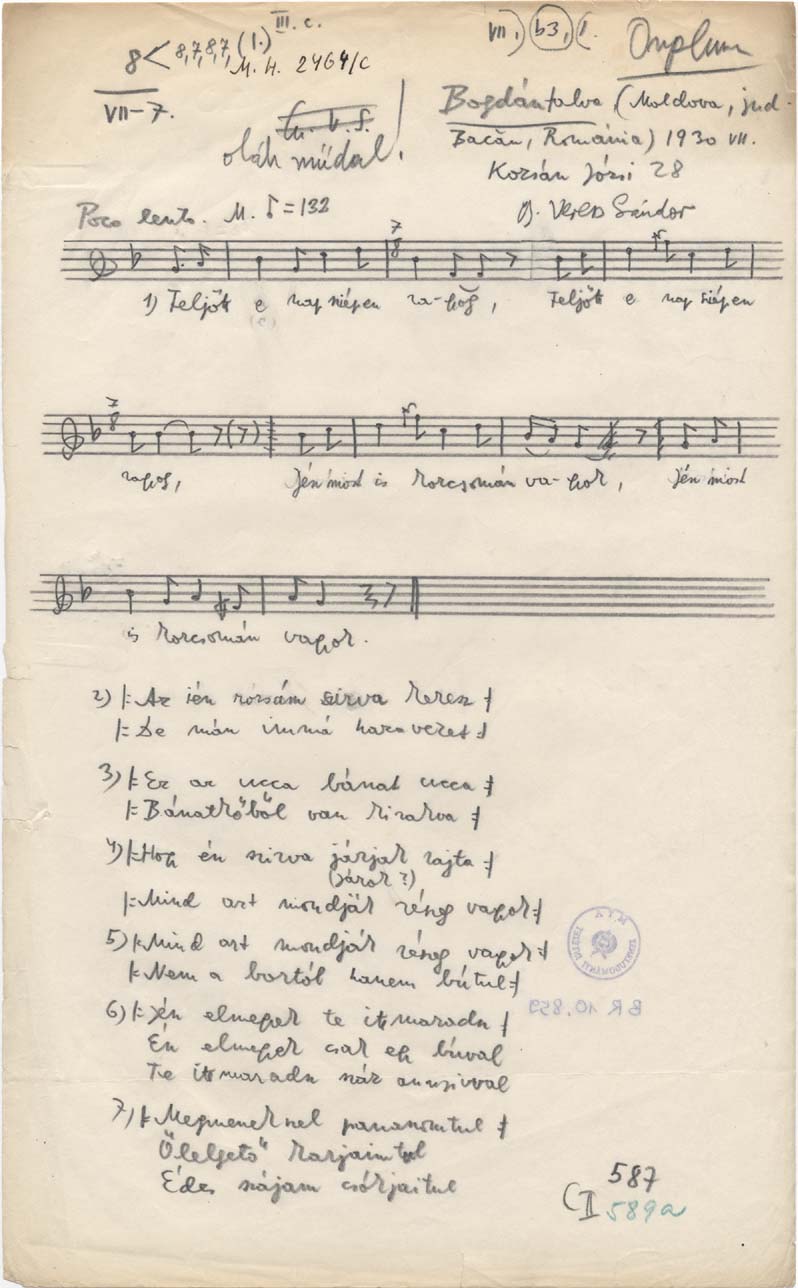 8 < 8,7,8,7, (1.) III. c.
M. H. 2464/c
VII-7.
VII.) b3, I.
oláh műdal!
Bogdánfalva (Moldova, jud.
Bacău, Románia) 1930 VII.
Kozsán Józsi 28
Gy. Veress Sándor
Poco lento. M. ♪=132
1) Feljött e nap szépen ra-gyog, Feljött e nap szépen
(a)
7
8
ragyog, Jén most is korcsomán va-gyok, Jén most
is korcsomán vagyok.
2) |: Az ién rózsám sirva keresz :|
|: De mán immá haza vezet :|
3) |: Ez az ucca bánat ucca :|
|: Bánatkőből van kirakva :|
4) |: Hogy én szirva járjak rajta :|
(járok?)
|: Mind azt mondják részeg vagyok :|
5) |: Mind azt mondják részeg vagyok :|
|: Nem a bortól hanem bútul :|
6) |: Jén elmegyek te itt maradsz :|
Én elmegyek csak egy búval
Te itt maradsz száz annyivval
7) |: Megmeneksznel pananomtul :|
Ölelgető karjaimtul
Édes szájam csókjaitul
BR 10.859
587
C II 589a